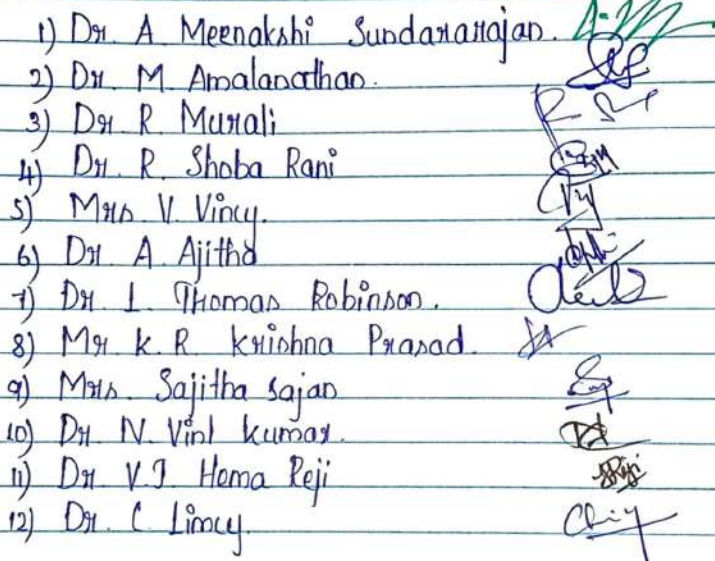 1) Dr. A Meenakshi Sundararajan.
2) Dr. M. Amalanathan.
3) Dr R Murali
4) Dr. R. Shoba Rani
5) Mrs. V. Vincy.
6) Dr. A Ajitha
7) Dr. L. Thomas Robinson.
8) Mr. K. R. Krishna Prasad.
9) Mrs. Sajitha Sajan
10) Dr. N. Vinl kumar.
11) Dr V.J Hema Reji
12) Dr. C Limcy.